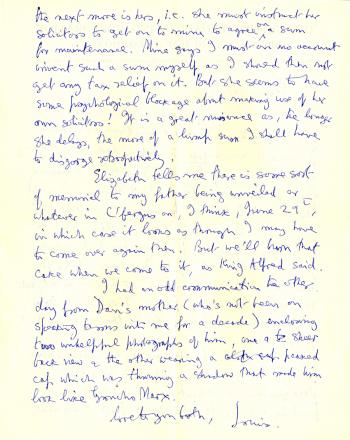 the next move is hers, i.e. she must instruct her
solicitors to get on to mine to agree on a sum
for maintenance. Mine says I must on no account
invent such a sum myself as I should then not
get any tax relief on it. But she seems to have
some psychological blockage about making use of her
own solicitors! It is a great nuisance as, the longer
she delays, the more of a lump sum I shall have
to disgorge retrospectively.
Elizabeth tells me there is some sort
of memorial to my father being unveiled or
whatever in C'fergus on, I think, June 29th,
in which case it looks as though I may have
to come over again then. But we'll burn that
cake when we come to it, as King Alfred said.
I had an odd communication the other
day from Dan's mother (who's not been on
speaking terms with me for a decade) enclosing
two unhelpful photographs of him, one a sheer
back view & the other wearing a peaked
cap which was throwing a shadow that made him
look like Groucho Marx.
love to you both, Louis.